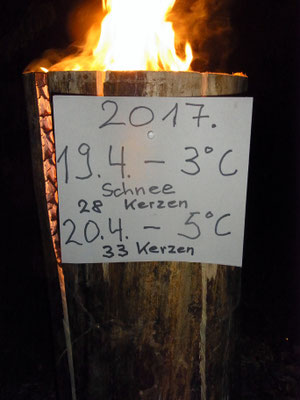 2017.
19.4. – 3°C
Schnee
28 Kerzen
20.4. – 5°C
33 Kerzen